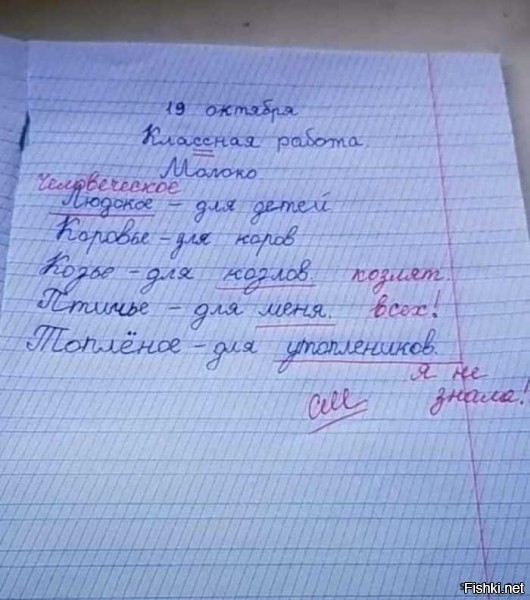 19 октября
Классная работа.
Молоко
Человеческое
Людское – для детей
Коровье – для коров
Козье – для козлов. козлят.
Птичье – для меня. всех!
Топлёное – для утоплеников.
я не
см знала!
Fishki.net